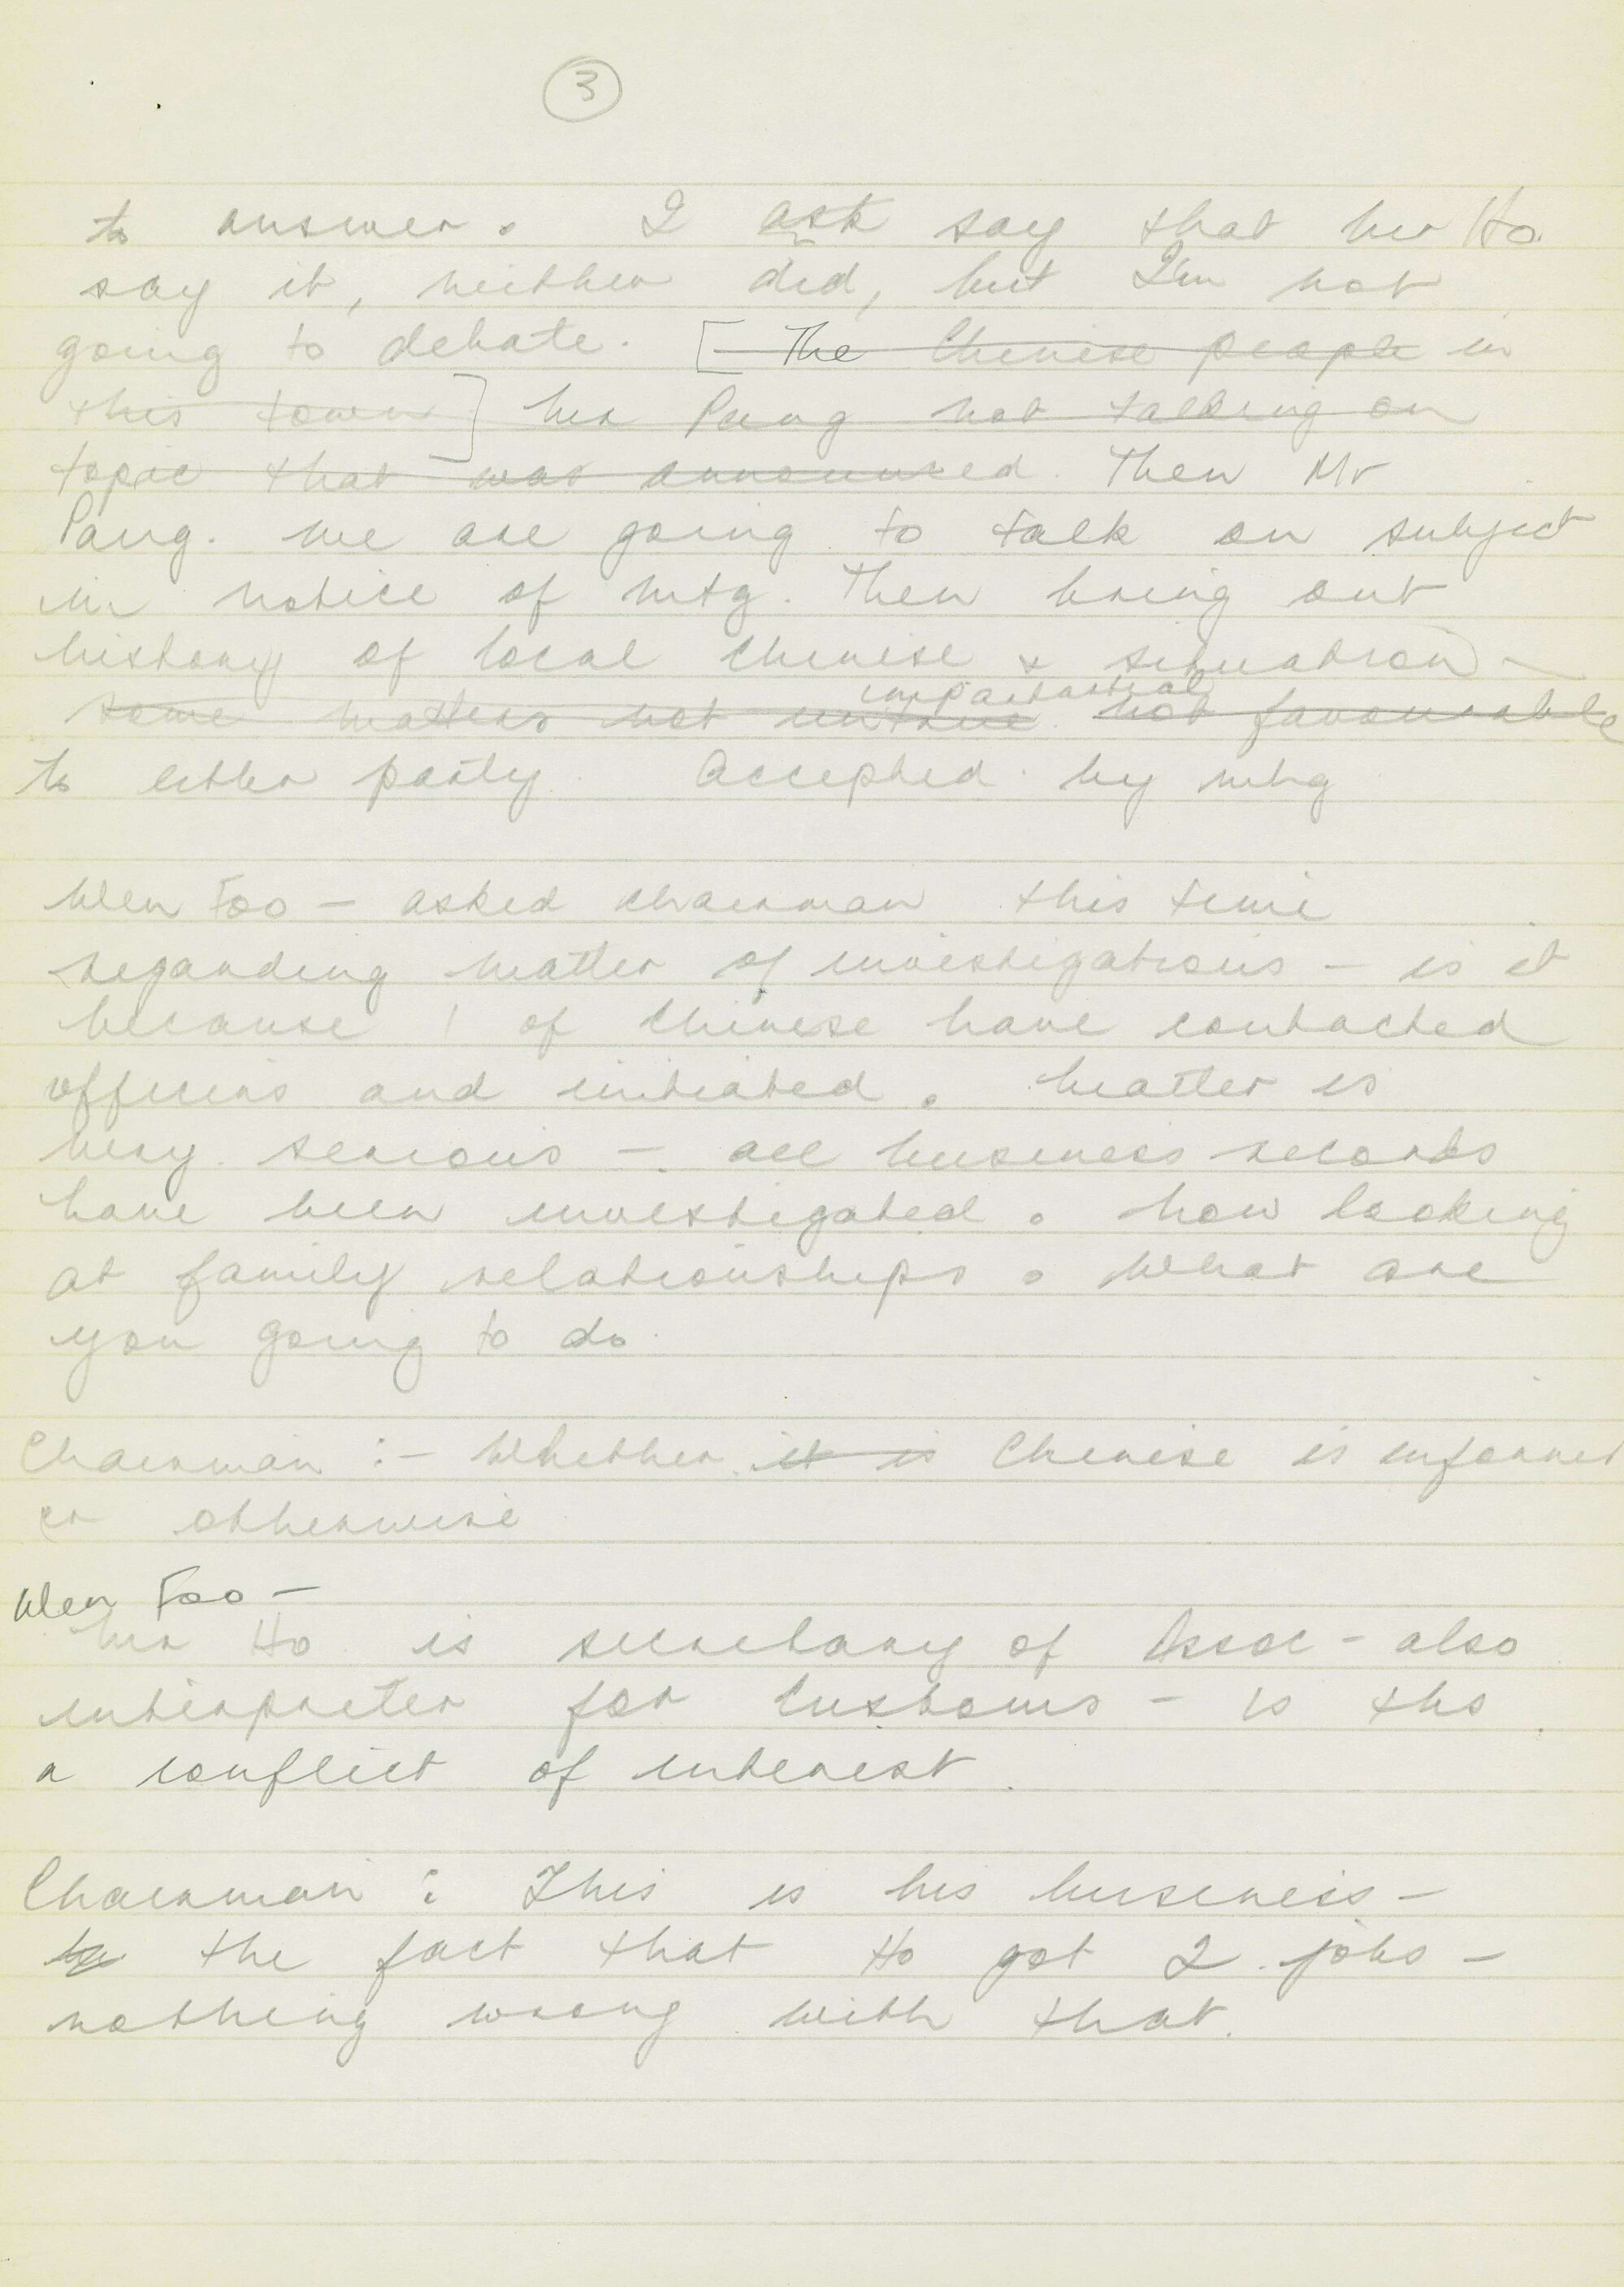 3
to answer. I ask say that Mr Ho.
say it, neither did, but I'm not
going to debate. [— The Chinese people in
this town] Mr Pang not talking on
topic that was announced. Then Mr
Pang. We are going to talk on subject
in notice of mtg. Then bring out
history of local Chinese & situation —
impartial
some matters not untrue. not favourable
to either party. Accepted by mtg
Wen Foo — asked chairman this time
regarding matter of investigations — is it
because 1 of Chinese have contacted
officers and initiated. Matter is
very serious — all business records
have been investigated. Now looking
at family relationships. What are
you going to do
Chairman :- Whether it is Chinese is informer
or otherwise
Wen Foo —
Mr Ho is secretary of Assoc - also
interpreter for Customs - is ths
a conflict of interest.
Chairman : This is his business —
the fact that Ho got 2 jobs —
nothing wrong with that.